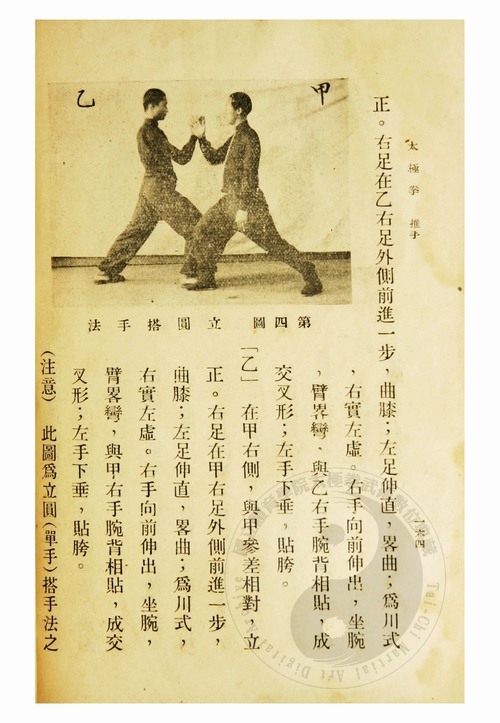 太極拳 推手
一六四
正。右足在乙右足外側前進一步,曲膝;左足伸直,畧曲;爲川式
,右實左虛。右手向前伸出,坐腕
,臂畧彎,與乙右手腕背相貼,成
交叉形;左手下垂,貼胯。
甲
乙
第四圖 立圓搭手法
「乙」 在甲右側,與甲參差相對,立
正。右足在甲右足外側前進一步,
曲膝;左足伸直,畧曲;爲川式,
右實左虛。右手向前伸出,坐腕,
臂畧彎,與甲右手腕背相貼,成交
叉形;左手下垂,貼胯。
(注意) 此圖爲立圓(單手)搭手法之
Tai-Chi Martial Art Digital